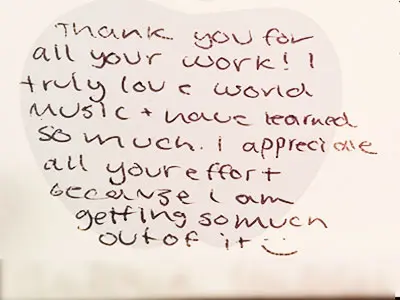 Thank you for
all your work! I
truly love world
music + have learned
so much. i appreciate
all your effort
because i am
getting so much
out of it :)